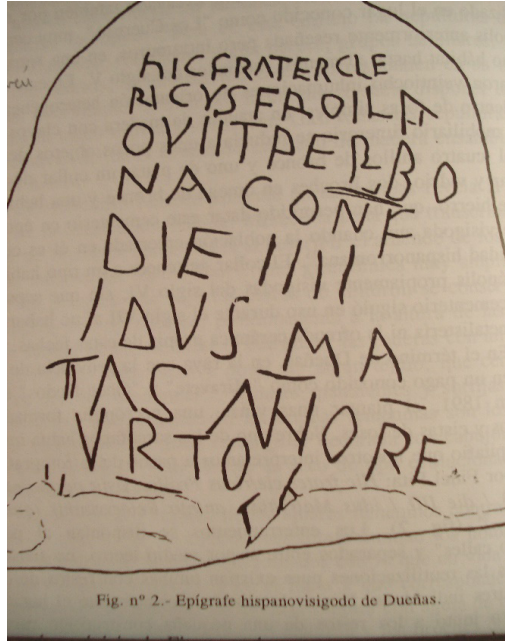 HIC FRATER CLE
RICVS FROILA
OVIIT PER BO
NA CONF
DIE IIII
IDVS MA
TAS AN
VRTO NORE
TA
Fig. nº 2.- Epígrafe hispanovisigodo de Dueñas.